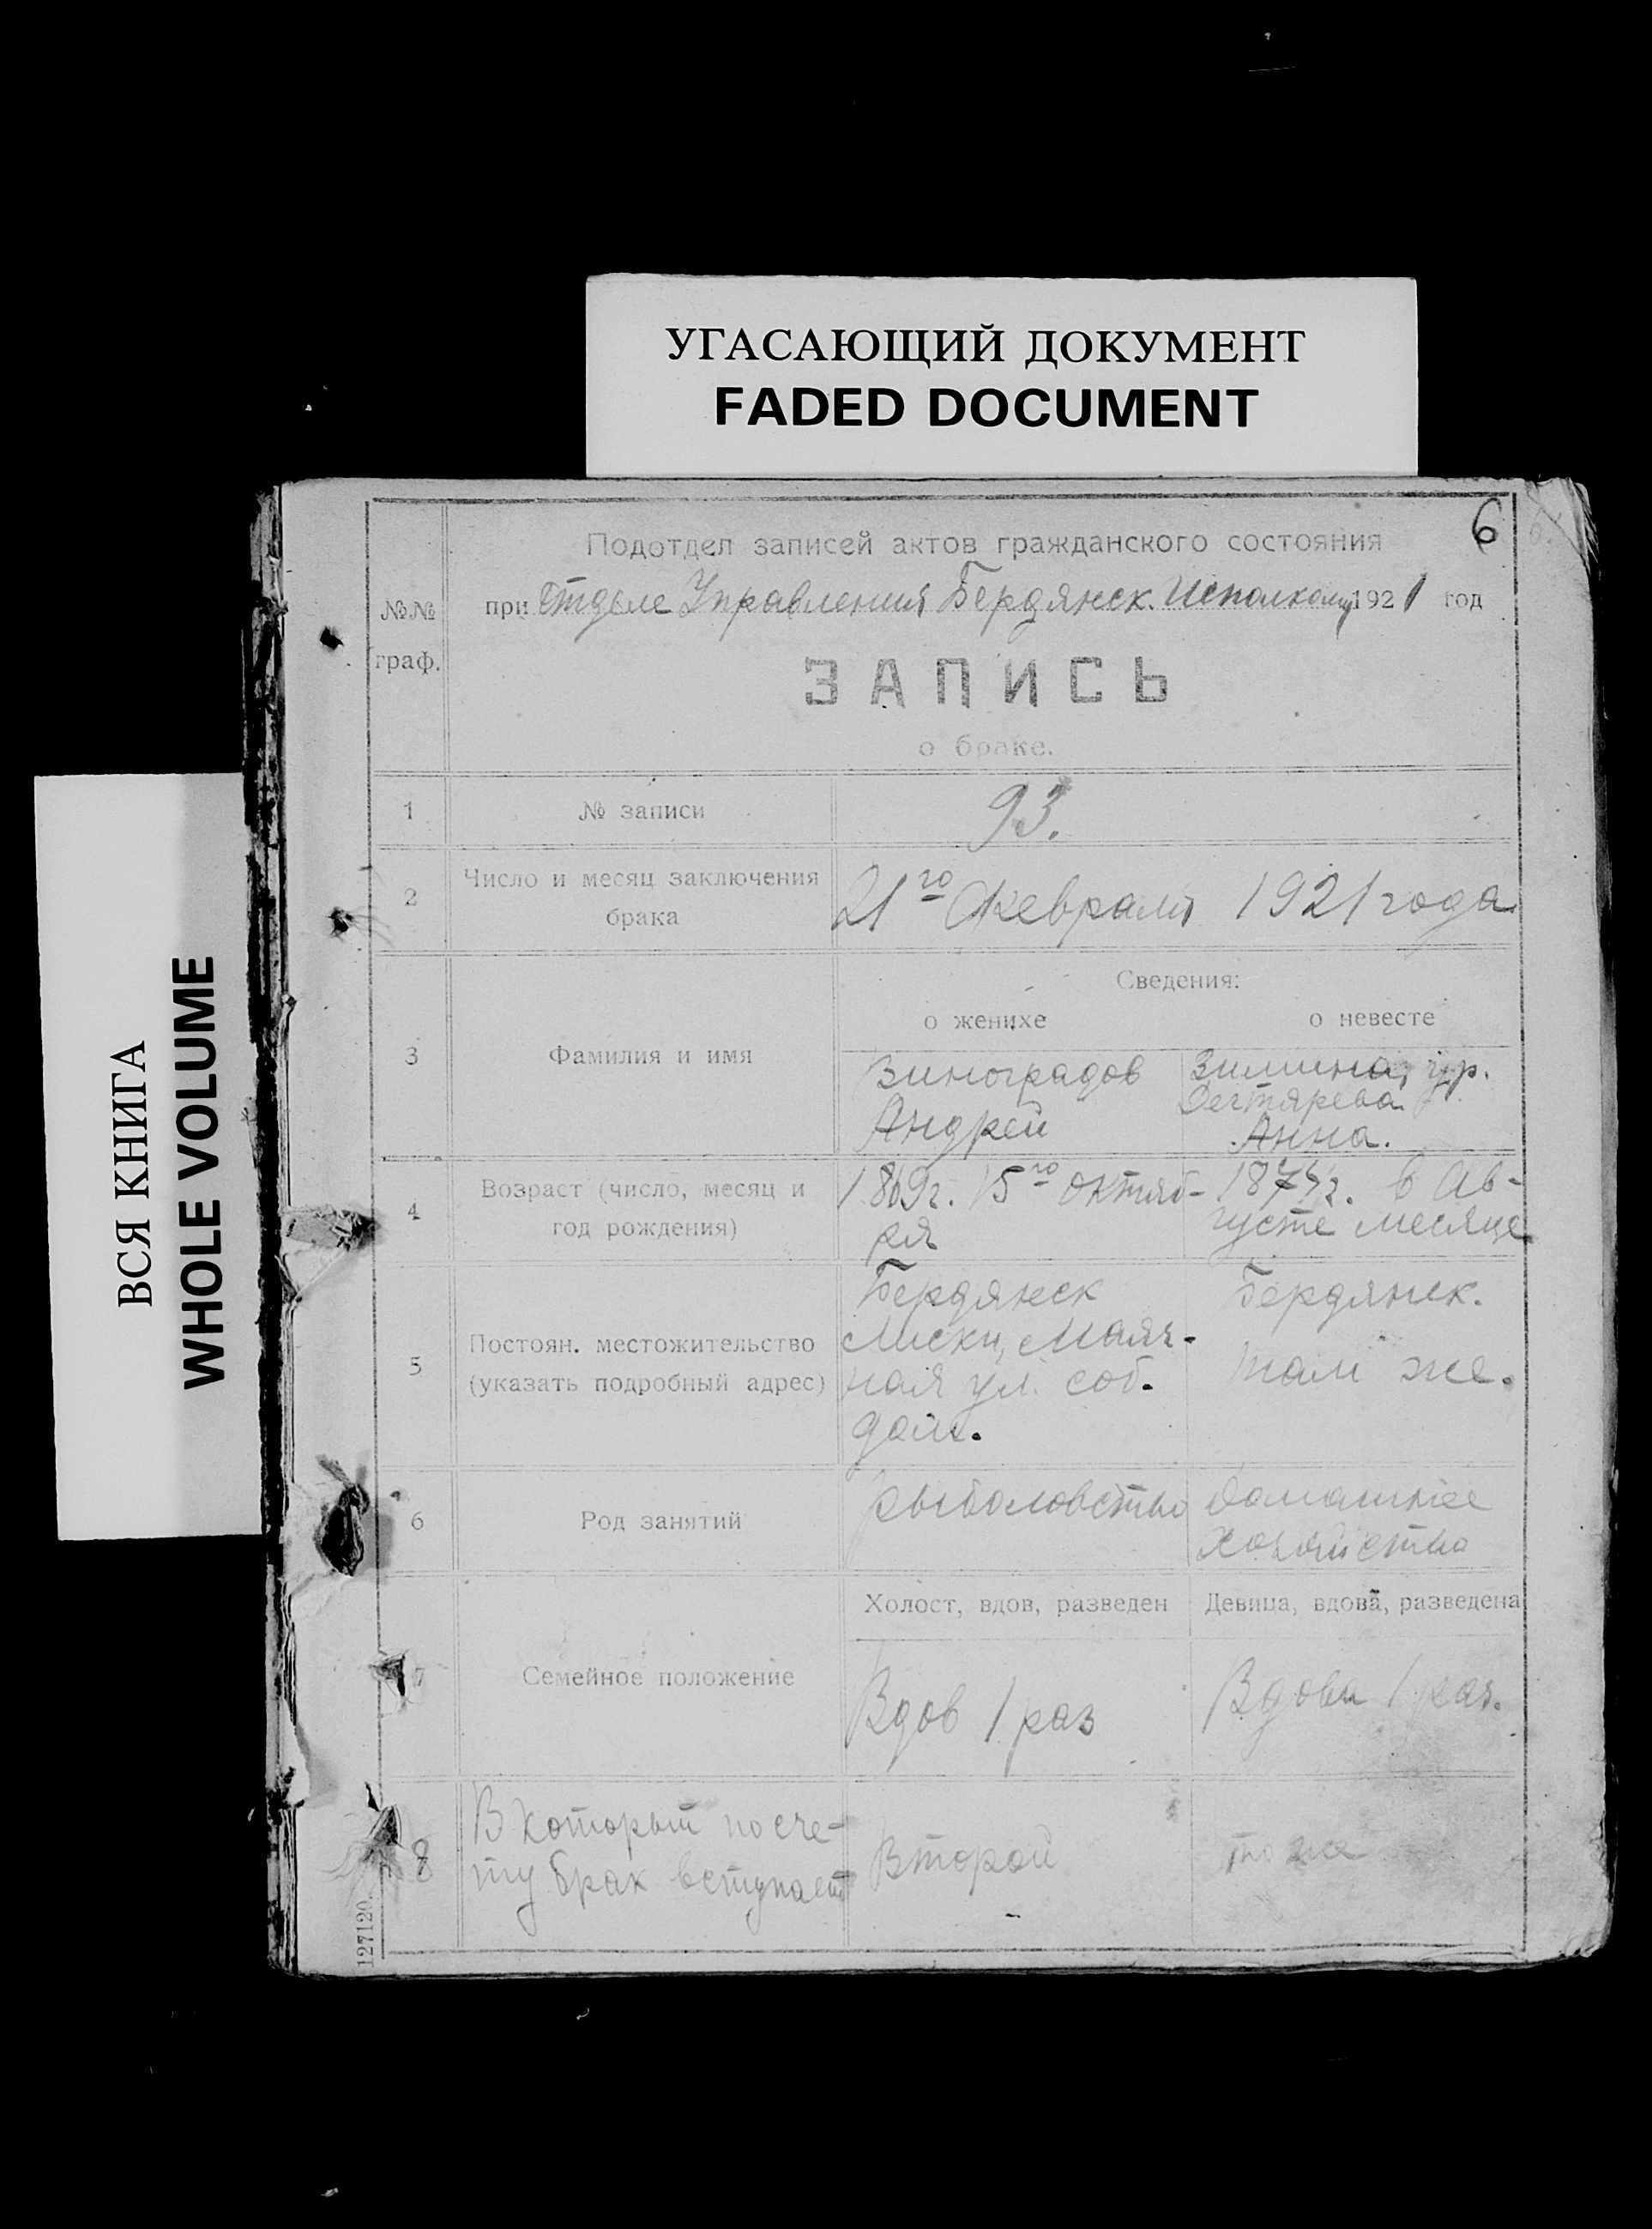 УГАСАЮЩИЙ ДОКУМЕНТ
FADED DOCUMENT
ВСЯ КНИГА
WHOLE VOLUME
6
№№ граф.
Подотдел записей актов гражданского состояния
при Отделе Управления Бердянск. Исполкома 1921 год
ЗАПИСЬ
о браке.
1 № записи 93.
2 Число и месяц заключения
брака
21го Февраля 1921 года
Сведения:
о женихе о невесте
3 Фамилия и имя
Виноградов
Андрей
Зимина, ур.
Дегтярева
Анна.
4 Возраст (число, месяц и
год рождения)
1869г. 15го Октяб-
ря
1874г. в Ав-
густе месяце
5 Постоян. местожительство
(указать подробный адрес)
Бердянск
Лиски, Маяч-
ная ул. соб.
дом.
Бердянск.
там же.
6 Род занятий
рыболовство
домашнее
хозяйство
7 Семейное положение
Холост, вдов, разведен
Вдов 1 раз
Девица, вдова, разведена
Вдова 1 раз.
8 В который по сче-
ту брак вступает
Второй
то же
127120.